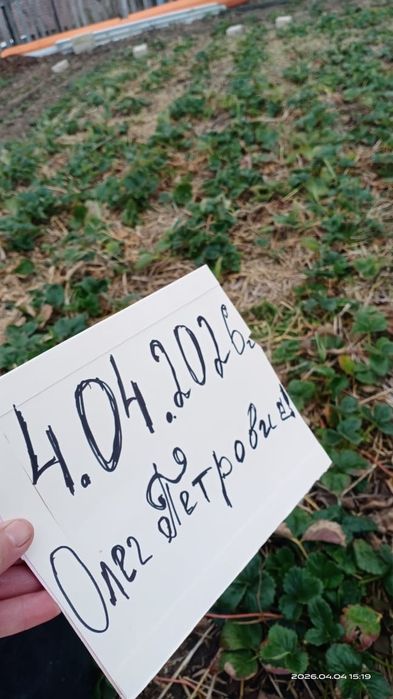 4.04.2026г.
Олег Петрович!
2026.04.04 15:19